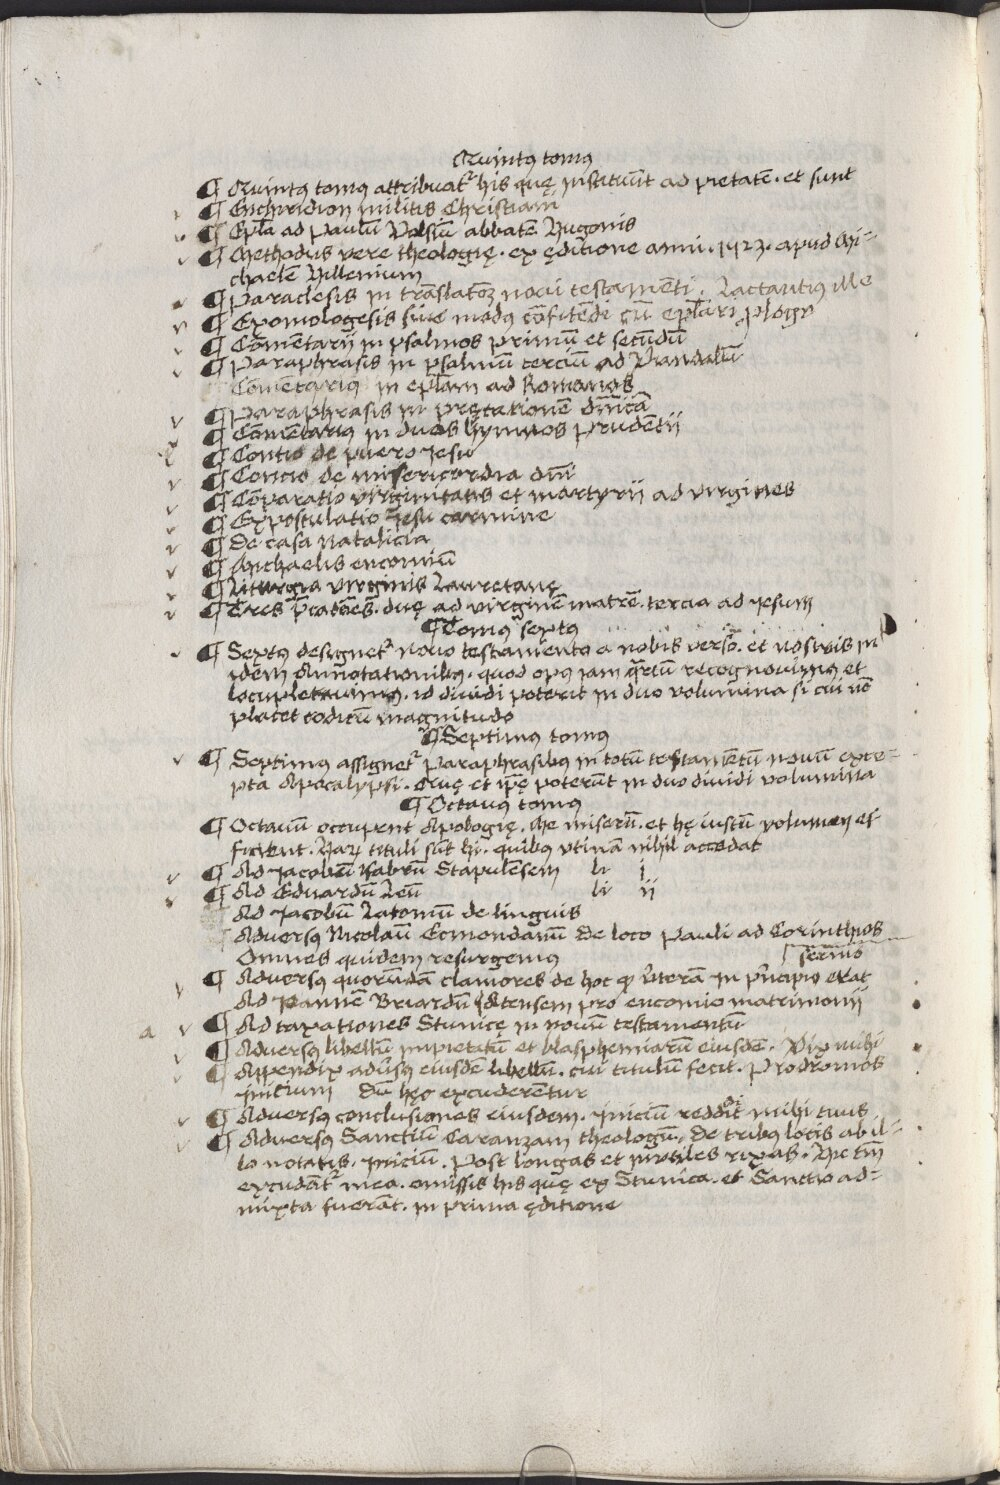 Quintꝰ tomꝰ
¶ Quintꝰ tomꝰ attribuat᷑ his quę instituūt ad pietatē. et sunt
¶ Enchiridion militis Christiani
¶ Epl̄a ad Paulū Volsiū abbatē Hugonis
¶ Methodus vere theologię. ex ęditione anni. 1523. apud Mi⸗
chaelē Hillenium
¶ Paraclesis in translatōꝫ noui testamenti. Lactantiꝰ ille
¶ Exomologesis siue modꝰ cōfitēdi cū epl̄ari ꝓlogo
¶ Cōmētarij in psalmos primū et secūdū
¶ Paraphrasis in psalmū terciū ad
Cōmētariꝰ in epl̄am ad Romanos
¶ Paraphrasis in pręcationē dn̄icā
¶ Cōmētariꝰ in duos hymnos Prudētij
¶ Contio de puero Jesu
¶ Concio de misericordia dn̄i
¶ Cōparatio virginitatis et martyrij ad virgines
¶ Expostulatio Jesu carmine
¶ De casa natalicia
¶ Michaelis encomiū
¶ Liturgia virginis Lauretanę
¶ Tres p̄catōes. duę ad virginē matrē. tercia ad Jesum
¶ Tomꝰ sextꝰ
¶ Sextꝰ designet᷑ nouo testamento a nobis verso. et nostris in
idem Annotationibꝰ. quod opꝰ iam q̄rtū recognouimꝰ et
locupletauimꝰ. id diuidi poterit in duo volumina si cui nō
placet codicū magnitudo
¶ Septimꝰ tomꝰ
¶ Septimꝰ assignet᷑ Paraphrasibꝰ in totū testamētū nouū exce⸗
pta Apocalypsi. Quę et ip̄ę poterūt in duo diuidi volumina
¶ Octauꝰ tomꝰ
¶ Octauū occupent Apologię. Me miserū. et hę iustū volumen ef⸗
ficient. Harꝝ tituli sūt hi. quibꝰ vtinā nihil accedat
¶ Ad Jacobū Fabrū Stapulēsem li i
¶ Ad Eduardū Leū li ij
Ad Jacobū Latomū de linguis
Aduersꝰ Nicolaū Ecmondanū De loco Pauli ad Corinthios
Omnes quidem resurgemus
¶ Aduersꝰ quorūdā clamores de hoc ꝙ v̓terā In p̓ncipio erat sermo
Ad Joannē Briardū Atensem pro encomio matrimonij
a ¶ Ad taxationes Stunicę in nouū testamentū
¶ Aduersꝰ libellū impietatū et blasphemiarū eiusdē. Vix mihi
¶ Appendix adūsꝰ eiusdē libellū. cui titulū fecit. Prodromos
initium Dū hęc excuderentur
¶ Aduersꝰ conclusiones eiusdem. iniciū reddit mihi tuus
¶ Aduersꝰ Sanctiū Caranzam theologū. De tribꝰ locis ab il⸗
lo notatis. iniciū. Post longas et inutiles rixas. Hec tn̄
excudāt᷑ mea. omissis his quę ex Stunica. et Sanctio ad⸗
mixta fuerāt. in prima ęditione